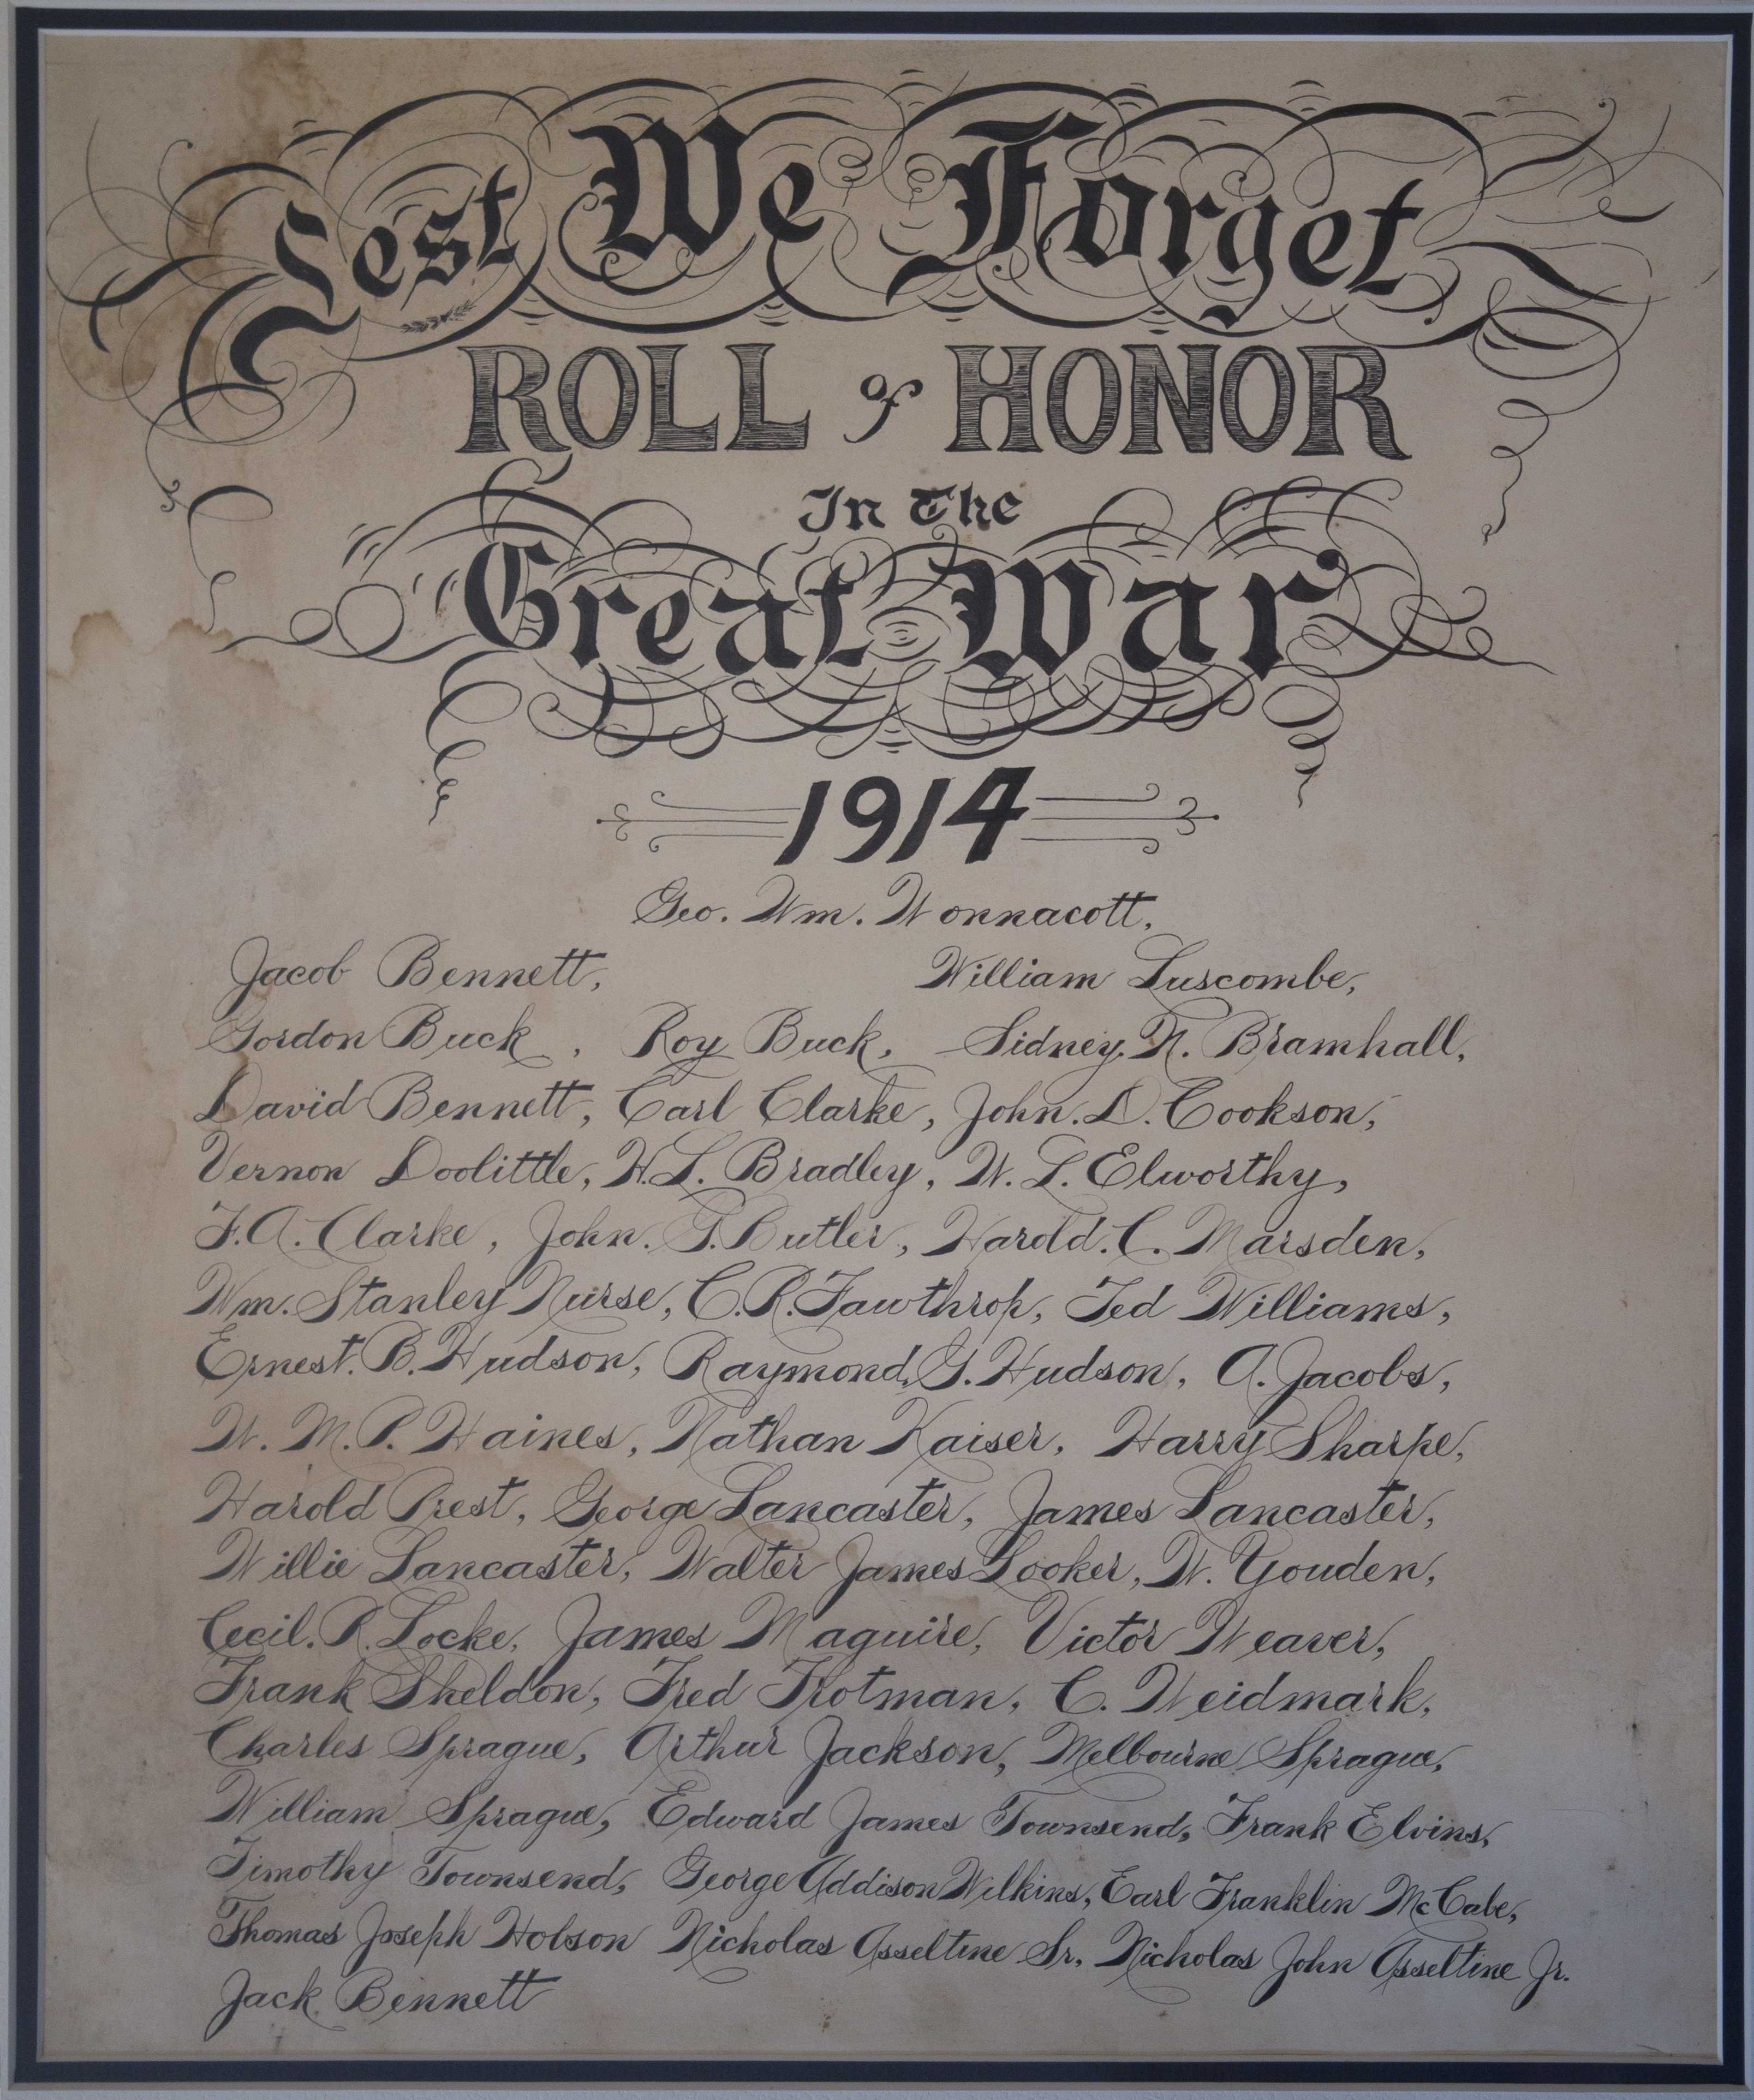 Lest We Forget
ROLL of HONOR
In The
Great War
1914
Geo. Wm. Wonnacott,
Jacob Bennett, William Luscombe,
Gordon Buck, Roy Buck, Sidney. N. Bramhall,
David Bennett, Carl Clarke, John. D. Cookson,
Vernon Doolittle, H.L. Bradley, W. L. Elworthy,
F.A. Clarke, John. G. Butler, Harold. C. Marsden,
Wm. Stanley Nurse, C.R. Fawthrop, Ted Williams,
Ernest. B. Hudson, Raymond. G. Hudson, A. Jacobs,
W. M. P. Haines, Nathan Kaiser, Harry Sharpe,
Harold Prest, George Lancaster, James Lancaster,
Willie Lancaster, Walter James Looker, W. Youden,
Cecil. R. Locke, James Maguire, Victor Weaver,
Frank Sheldon, Fred Trotman, C. Weidmark,
Charles Sprague, Arthur Jackson, Melbourne Sprague,
William Sprague, Edward James Townsend, Frank Elvins,
Timothy Townsend, George Addison Wilkins, Earl Franklin McCabe,
Thomas Joseph Hobson Nicholas Asseltine Sr. Nicholas John Asseltine Jr.
Jack Bennett